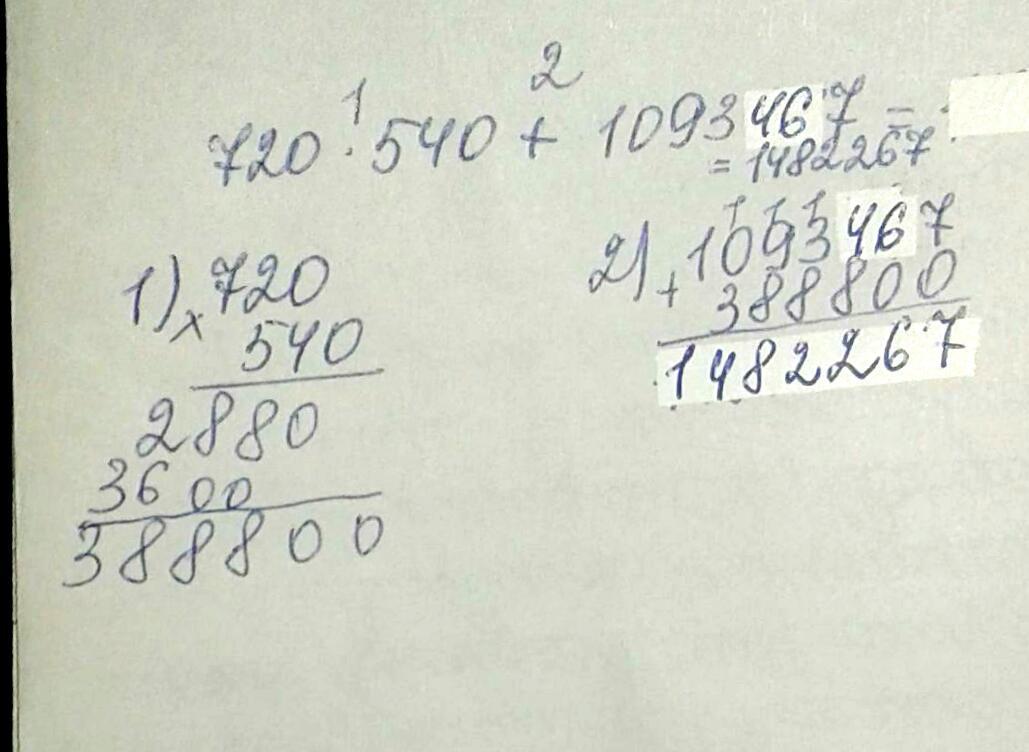 1 2
720 · 540 + 1093467 =
= 1482267
1) × 720
540
2880
3600
388800
1 1 1
2) + 1093467
388800
1482267